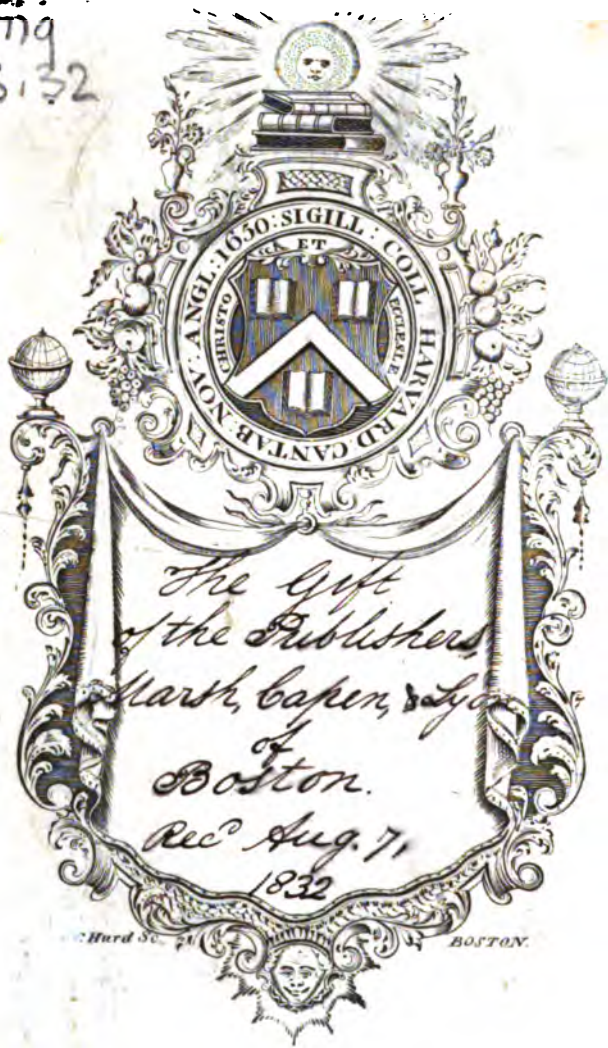 32
SIGILL : COLL HARVARD CANTAB: NOV: ANGL: 1650:
ET
CHRISTO
ECCLESIÆ
The Gift
of the Publishers,
Marsh, Capen, &
of
Boston.
Rec'd Aug. 7,
1832
N. Hurd Sc.
BOSTON.